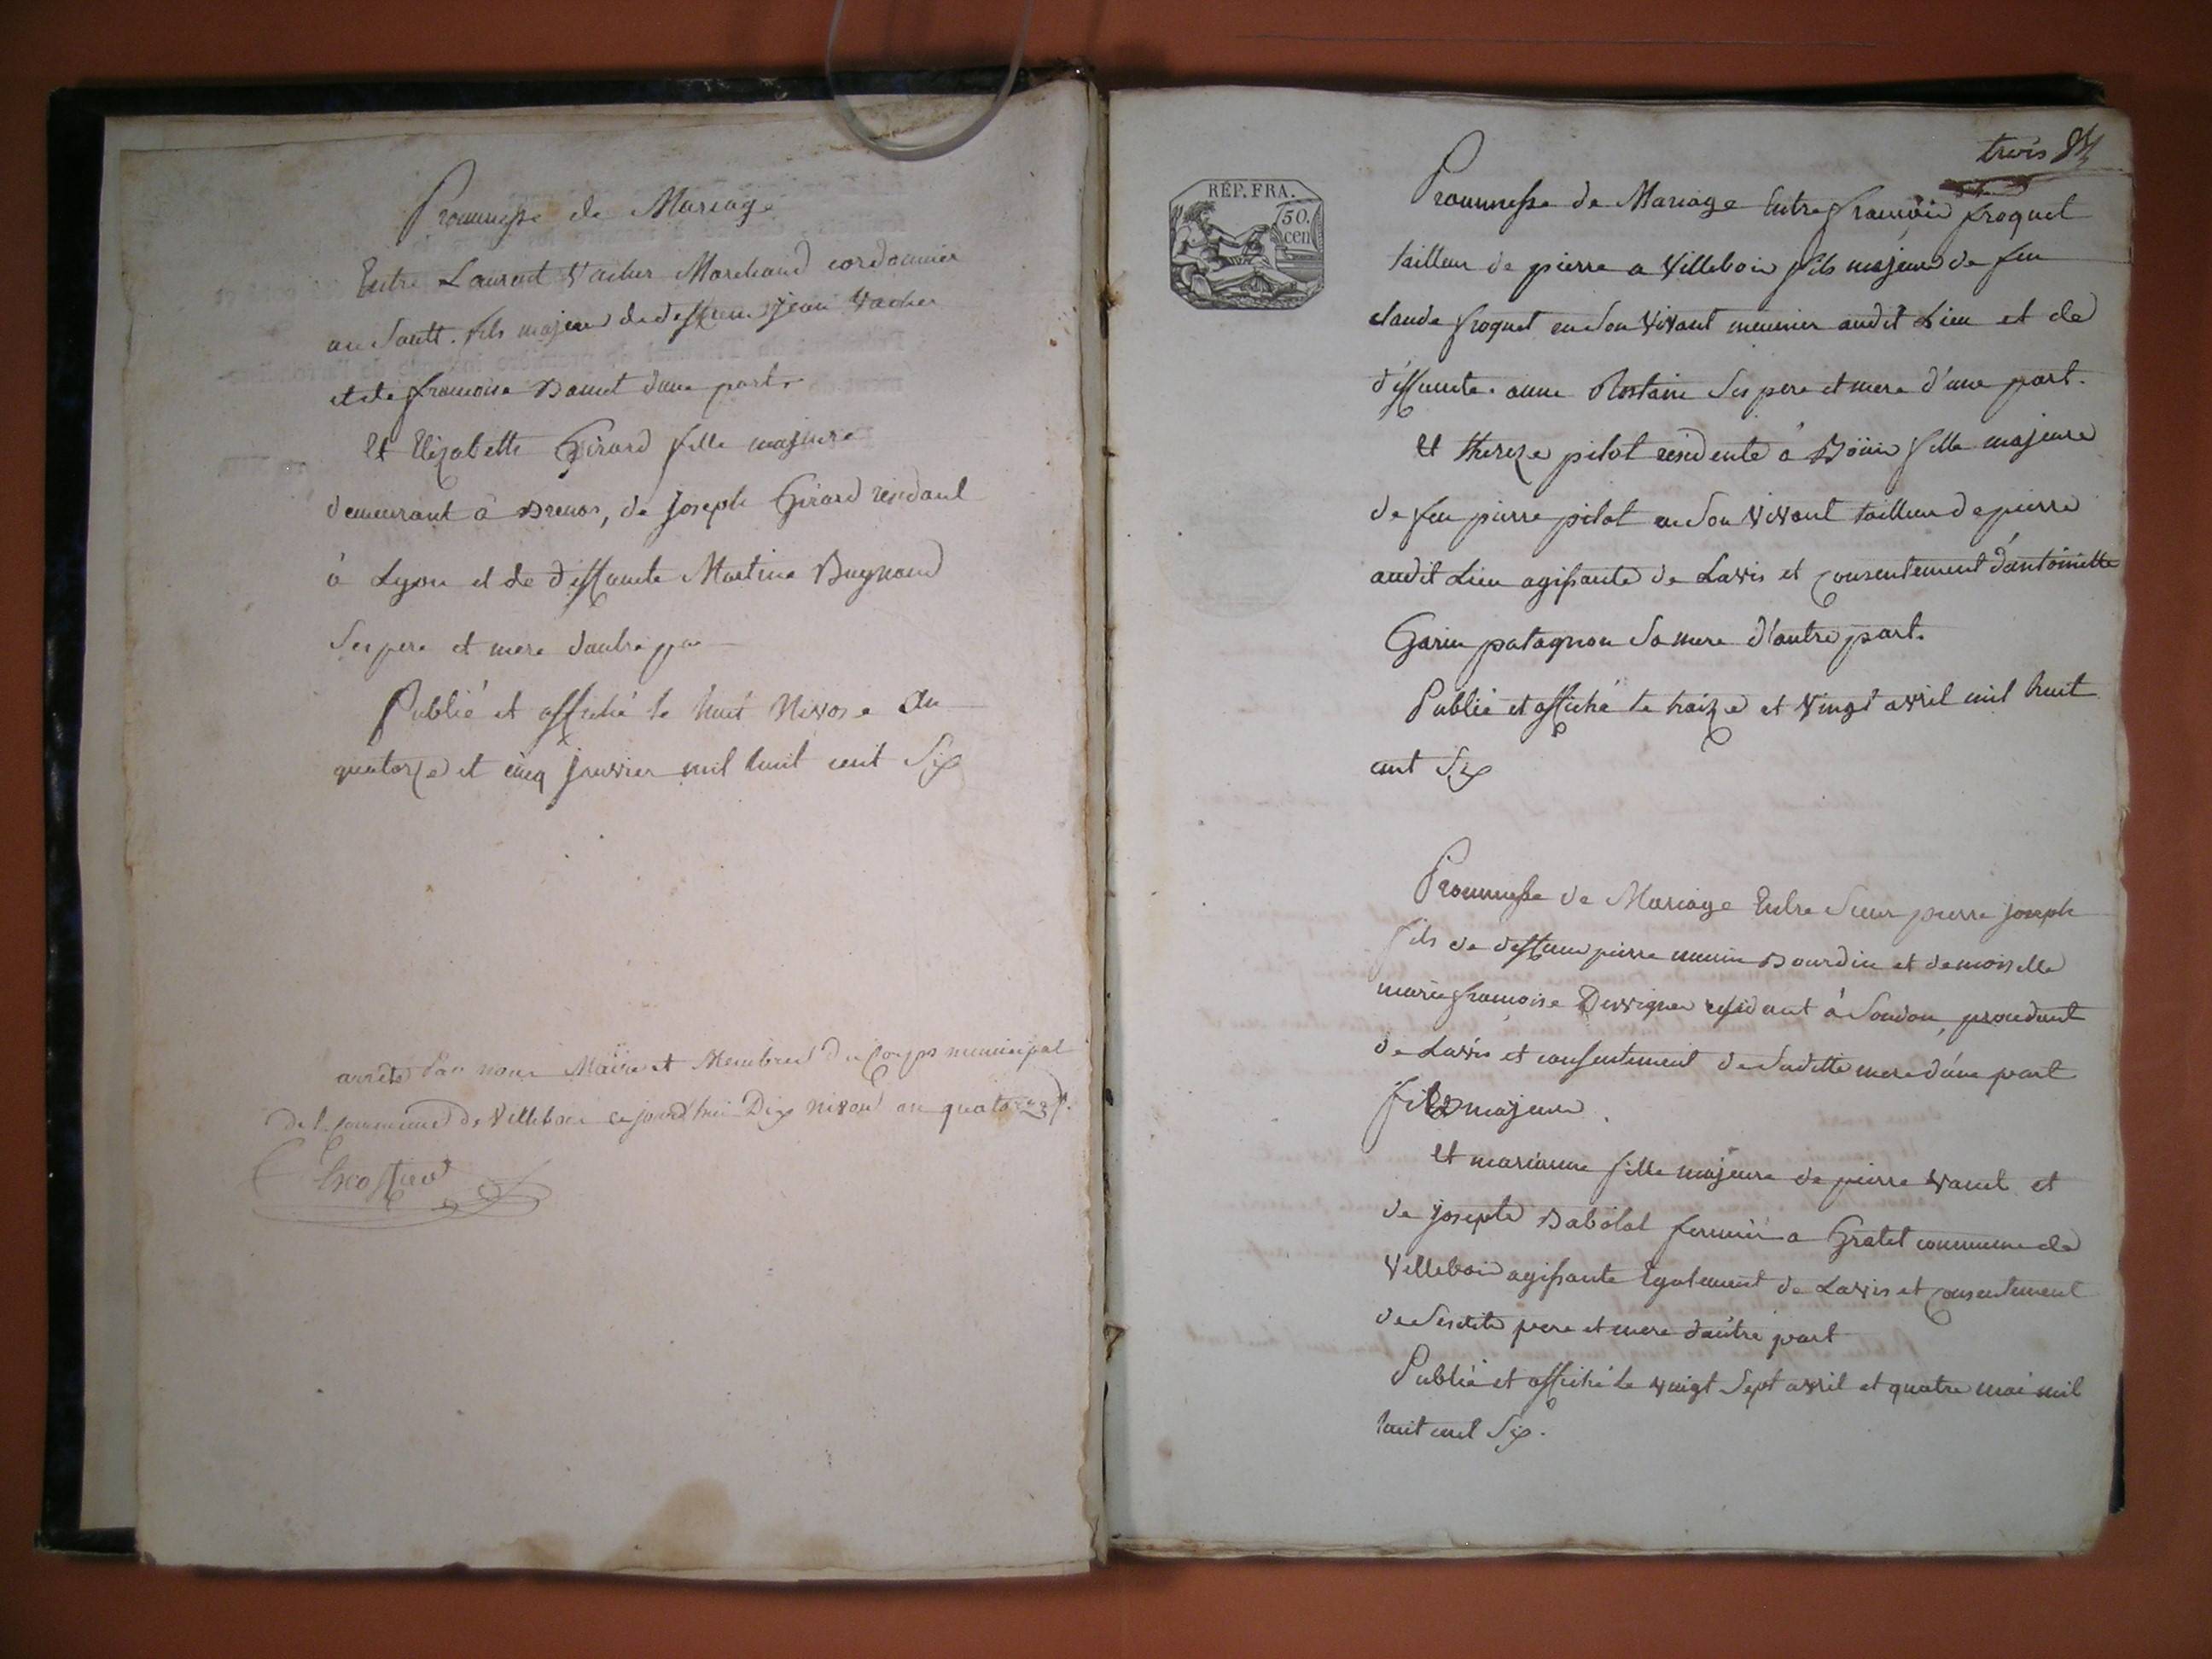 Prommesse de Mariage
Entre Laurent Vacher Marchand cordonnier
au Sault. fils majeur de deffeunt jean Vacher
et de francoise Bonnet d'une part.
Et Elizabette Girard fille majeure
demeurant à Brenos, de Joseph Girard résidant
à Lyon et de deffuncte Martine Bugnand
Ses pere et mere dautre par
Publié et affiché le huit Nivose An
quatorze et cinq janvier mil huit cent Six
arrêté Par nous Maire et Membres du corps municipal
de la commune de Villebois ce jourd'hui Dix nivose an quatorze
trois
REP. FRA.
50.
cen
Prommesse de Mariage Entre francois froquet
tailleur de pierre a Villebois fils majeur de feu
claude froquet en Son Vivant meunier audit Lieu et de
déffuncte anne Rostain Ses pere et mere d'une part.
Et thereze pilot residente à Boüis fille majeure
de feu pierre pilot en Son Vivant tailleur de pierre
audit Lieu agissante de Lavis et consentement d'antoinette
Garin patagnon Sa mere d'autre part.
Publié et affiché le traize et Vingt avril mil huit
cent Six
Prommesse de Mariage Entre Sieur pierre joseph
fils de deffunt pierre Bourdin et demoiselle
marie francoise residant à Soudon, procedant
de Lavis et consentement de Saditte mere d'une part
fils majeur.
et marianne fille majeure de pierre Vanel et
de josephte Babolat fermier a Gratet commune de
Villebois agissante Egalement de Lavis et consentement
de Sesdits pere et mere d'autre part
Publié et affiché le vingt Sept avril et quatre mai mil
huit cent Six.